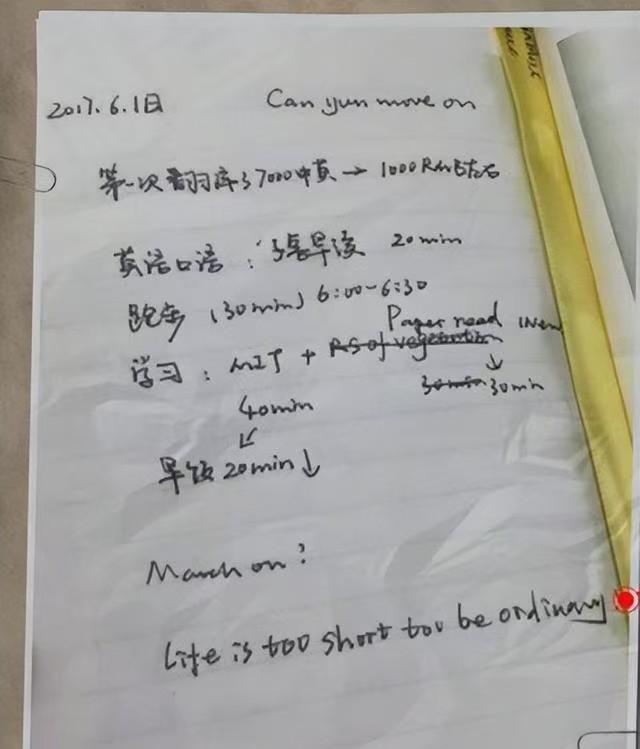 2017.6.1日 Can yun move on
第一次 7000 → 1000RMB左右
英语口语: 早读 20min
跑步 (30min) 6:00-6:30
Paper read
学习: MIT + RS of vegeration
40min 30min 30min
早饭 20min ↓
March on:
Life is too short too be ordinary